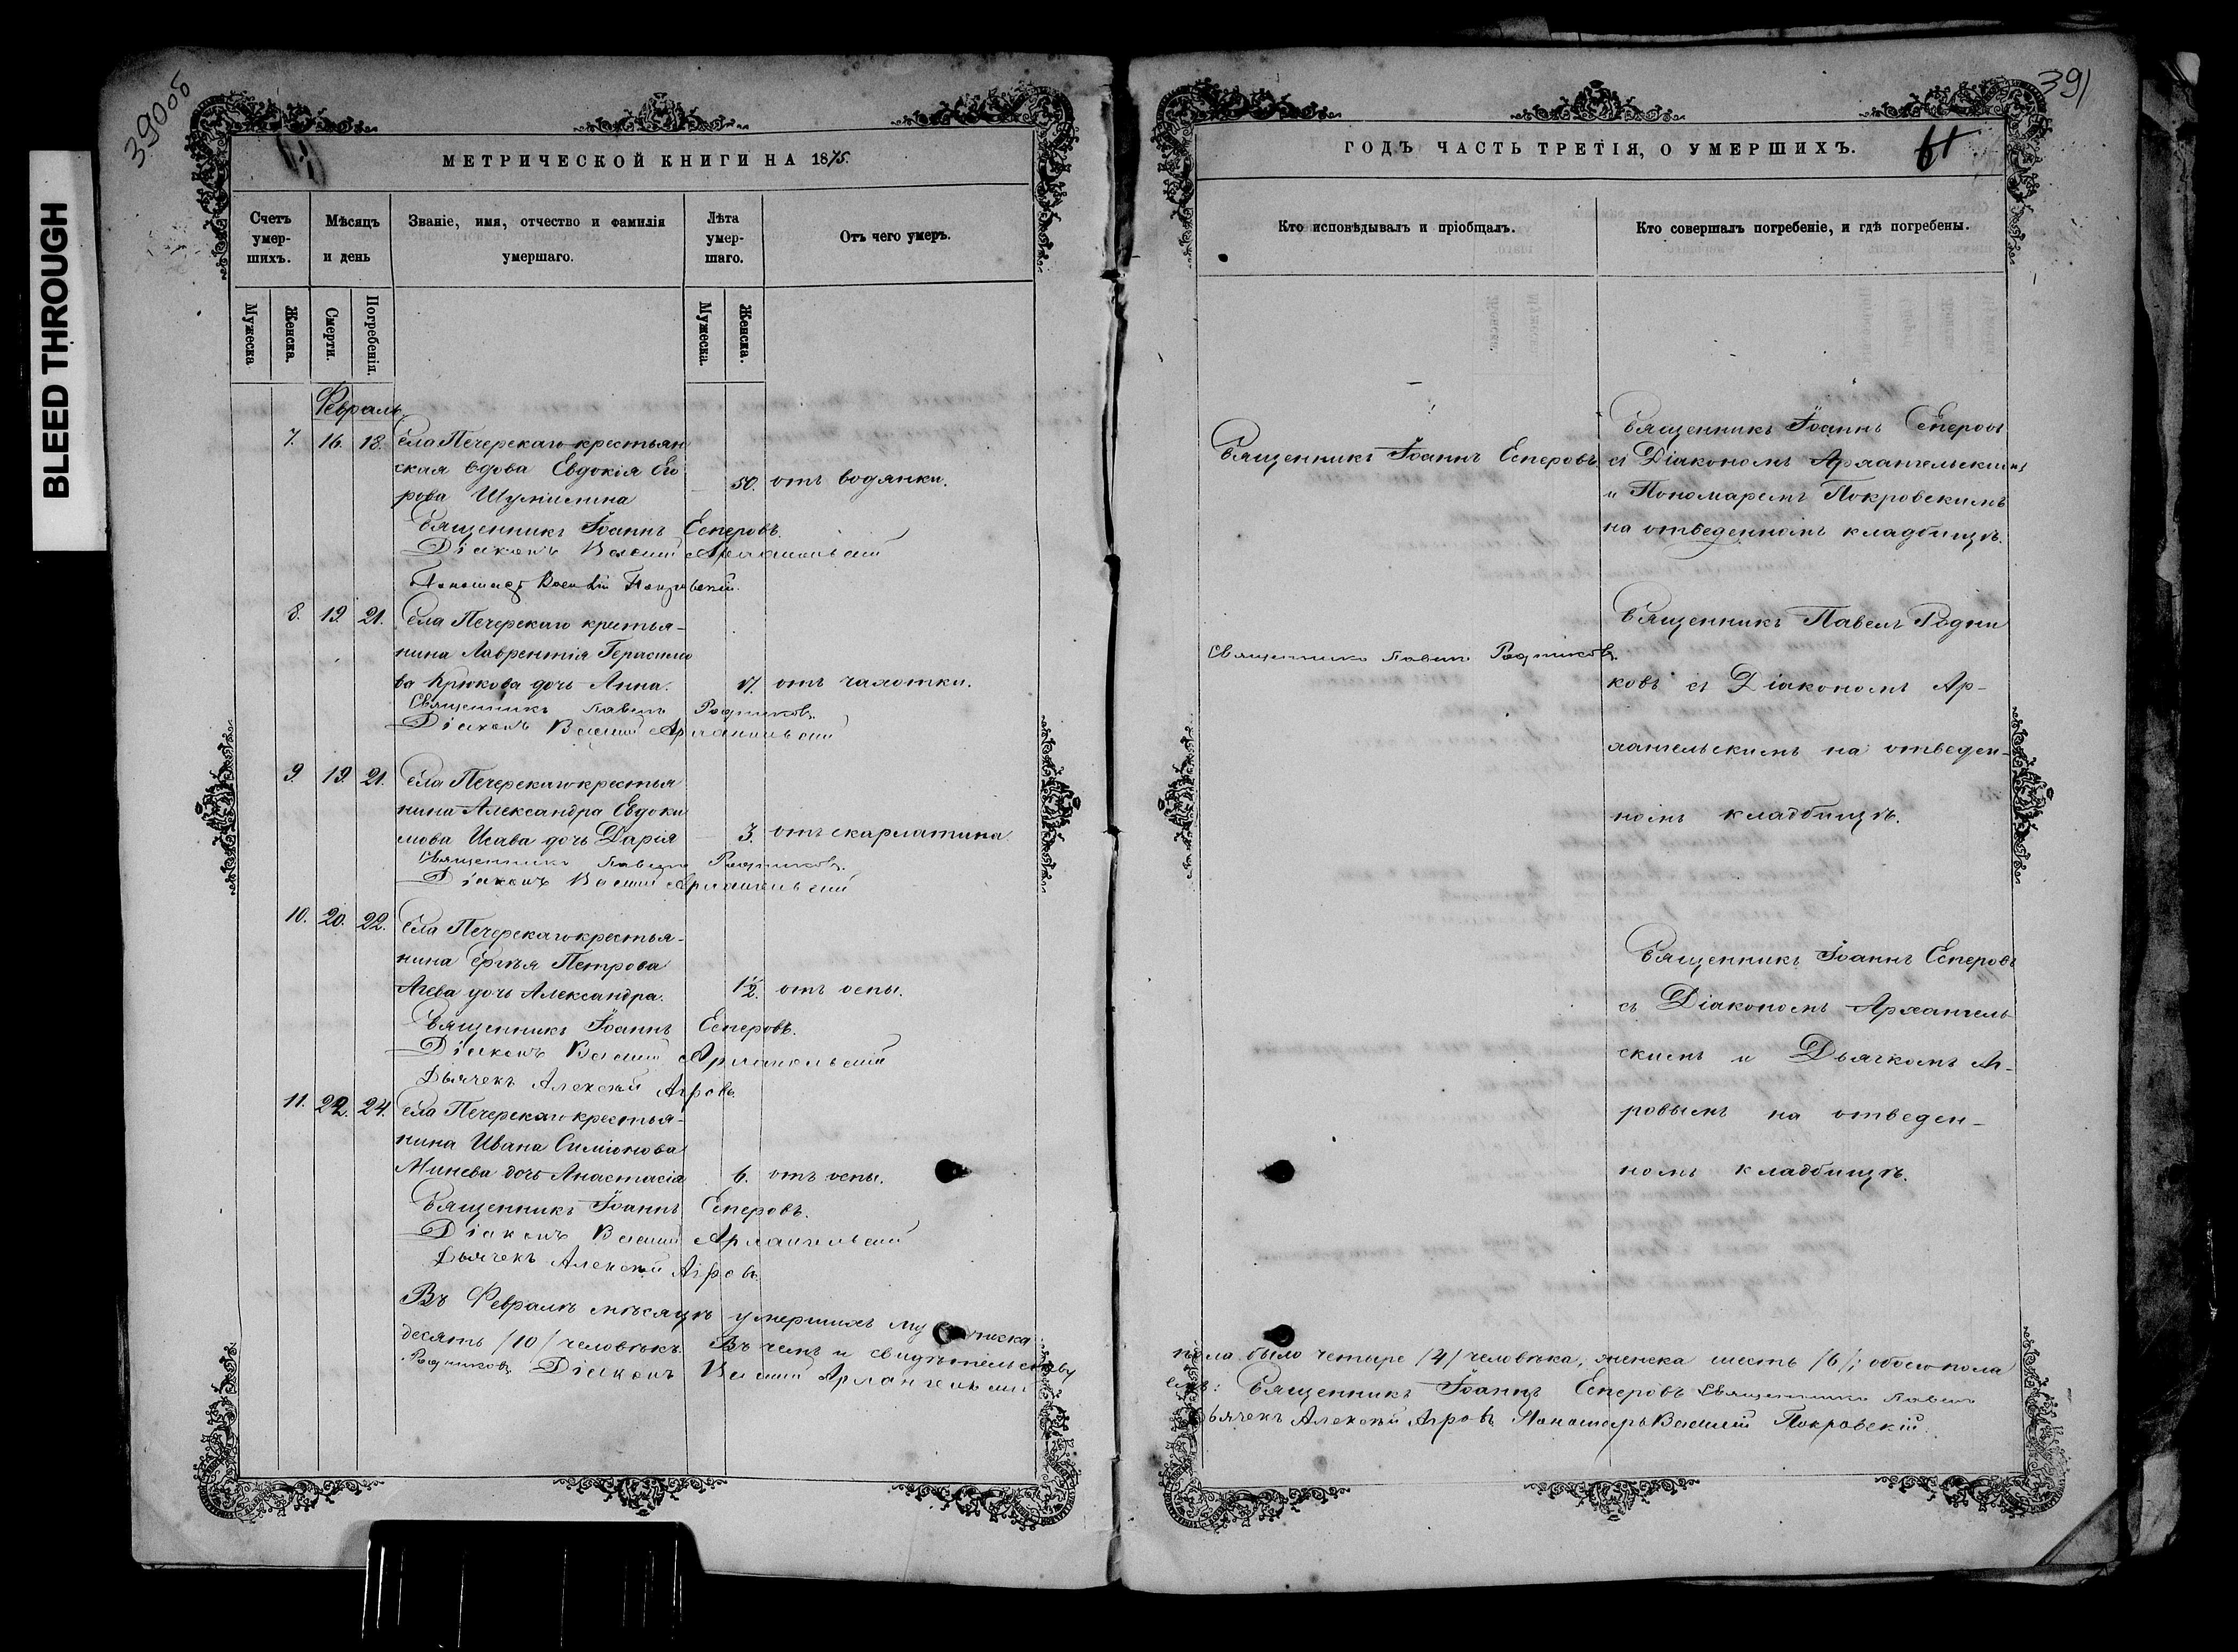 BLEED THROUGH
390об
МЕТРИЧЕСКОЙ КНИГИ НА 1875.
Счетъ умер-шихъ.
Мѣсяцъ и день
Званіе, имя, отчество и фамилія умершаго.
Лѣта умер-шаго.
Отъ чего умеръ.
Мужеска
Женска.
Смерти.
Погребенія.
Мужеска.
Женска.
Февраль.
7. 16. 18. Села Печерскаго крестьян
ская вдова Евдокія Его
рова Шумилина 50. отъ водянки.
Священникъ Іоаннъ Есперовъ.
Діаконъ Василій Архангельскій
Пономарь Василій Покровскій.
8. 19. 21. Села Печерскаго крестья-
нина Лаврентія Герасимо
ва Крюкова дочь Анна. 17. отъ чахотки.
Священникъ Павелъ Родниковъ.
Діаконъ Василій Архангельскій
9. 19. 21. Села Печерскаго крестья
нина Александра Евдоки
мова Исава дочь Дарія 3. отъ скарлатина.
Священникъ Павелъ Родниковъ.
Діаконъ Василій Архангельскій
10. 20. 22. Села Печерскаго крестья-
нина Сергѣя Петрова
Агева дочь Александра. 1½. отъ оспы.
Священникъ Іоаннъ Есперовъ.
Діаконъ Василій Архангельскій
Дьячекъ Алексѣй Агровъ.
11. 22. 24. Села Печерскаго крестья-
нина Ивана Симіонова
Минева дочь Анастасія 6. отъ оспы.
Священникъ Іоаннъ Есперовъ.
Діаконъ Василій Архангельскій
Дьячекъ Алексѣй Агровъ.
Въ Февралѣ мѣсяцѣ умершихъ мужеска
десять /10/ человѣкъ. Въ чемъ и свидѣтельству
Родниковъ Діаконъ Василій Архангельскій
391
ГОДЪ ЧАСТЬ ТРЕТІЯ, О УМЕРШИХЪ.
61
Кто исповѣдывалъ и пріобщалъ.
Кто совершалъ погребеніе, и гдѣ погребены.
Священникъ Іоаннъ Есперовъ
Священникъ Іоаннъ Есперовъ
съ Діакономъ Архангельскимъ
и Пономаремъ Покровскимъ
на отведенномъ кладбищѣ.
Священникъ Павелъ Родниковъ.
Священникъ Павелъ Родни
ковъ съ Діакономъ Ар-
хангельскимъ на отведен-
номъ кладбищѣ.
Священникъ Іоаннъ Есперовъ
съ Діакономъ Архангель
скимъ и Дьячкомъ Аг-
ровымъ на отведен-
номъ кладбищѣ.
пола было четыре /4/ человѣка, женска шесть /6/; обоего пола
емъ: Священникъ Іоаннъ Есперовъ Священникъ Павелъ
Дьячекъ Алексѣй Агровъ Пономарь Василій Покровскій.